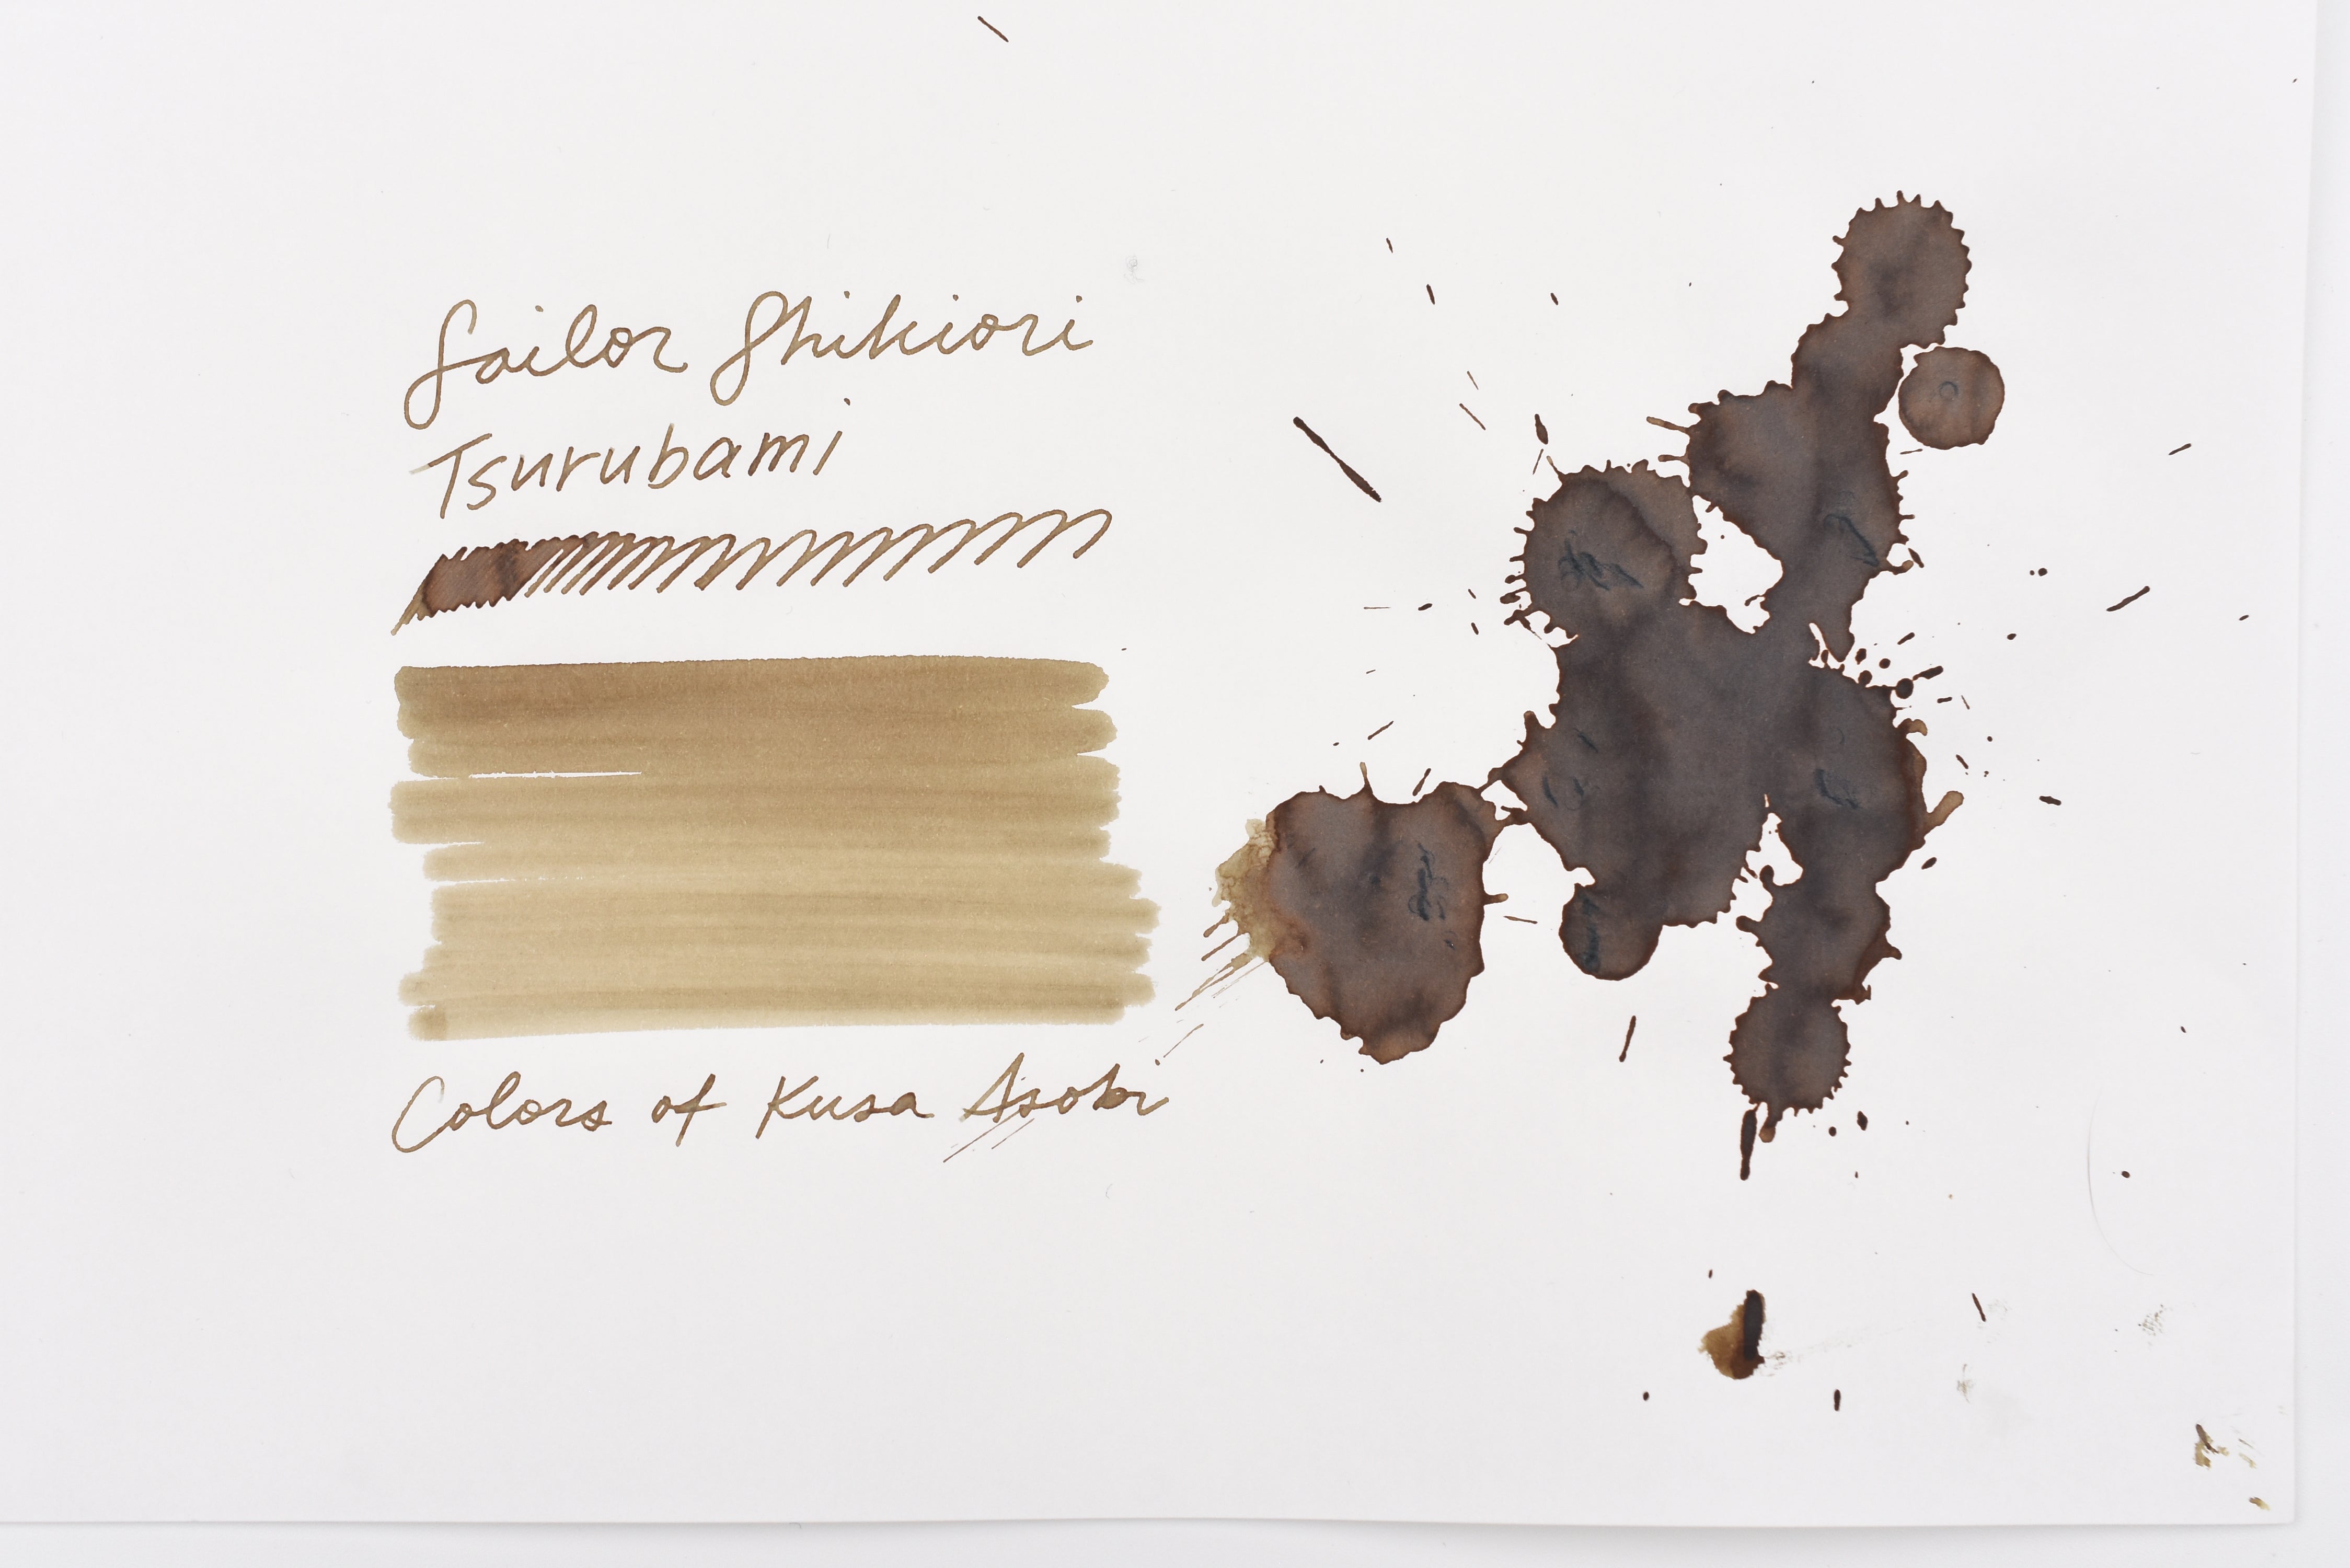 Sailor Shikiori
Tsurubami
Colors of Kusa Asobi